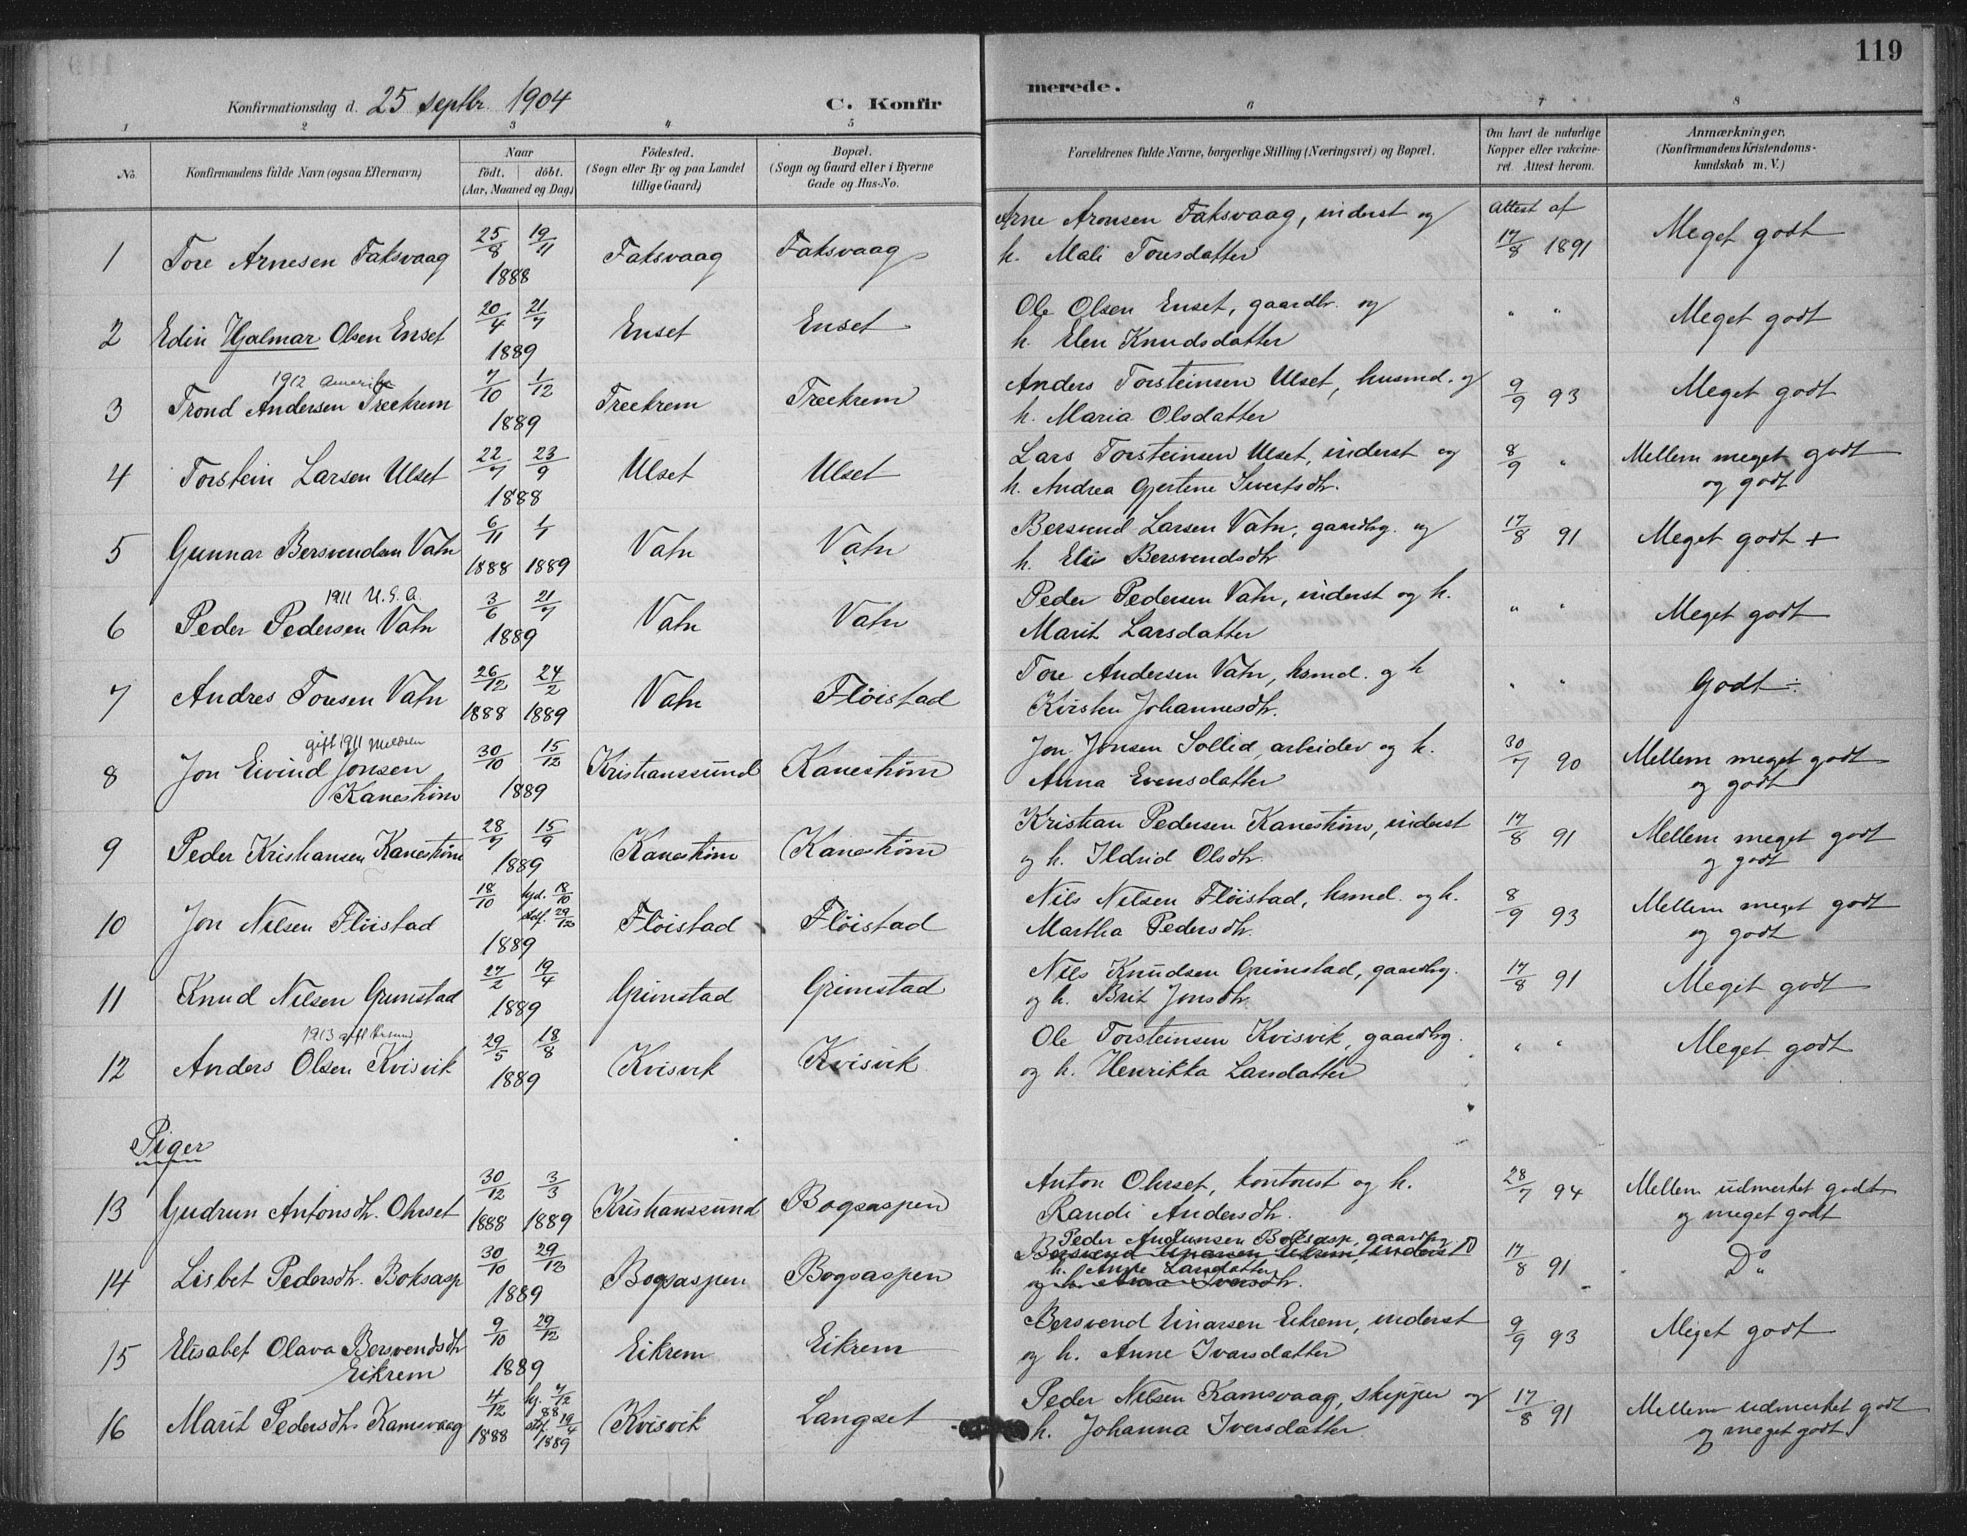 119
Konfirmationsdag d. 25 septbr. 1904 C. Konfir merede.
1 2 3 4 5 6 7 8
No. Konfirmandens fulde Navn (ogsaa Efternavn) Naar födt. döbt. (Aar, Maaned og Dag) Födested. (Sogn eller By og paa Landet tillige Gaard) Bopæl. (Sogn og Gaard eller i Byerne Gade og Hus-No. Forældrenes fulde Navne, borgerlige Stilling (Næringsvei) og Bopæl. Om havt de naturlige Kopper eller vakcineret. Attest herom. Anmærkninger. (Konfirmandens Kristendomskundskab m. V.)
1 Tore Arnesen Faksvaag 25/8 19/11 1888 Faksvaag Faksvaag Arne Aronsen Faksvaag, inderst og h. Mali Toresdatter Attest af 17/8 1891 Meget godt
2 Edin Hjalmar Olsen Enset 20/4 21/7 1889 Enset Enset Ole Olsen Enset, gaardbr. og h. Elen Knudsdatter " " Meget godt
1912 Amerika
3 Trond Andersen Treekrem 7/10 1/12 1889 Treekrem Treekrem Anders Torsteinsen Ulset, husmd. og h. Maria Olsdatter 9/9 93 Meget godt
4 Torstein Larsen Ulset 22/7 23/9 1888 Ulset Ulset Lars Torsteinsen Ulset, inderst og h. Andrea Gjertine Ivertsdtr. 8/9 " Mellem meget godt og godt
5 Gunnar Bersvendsen Vatn 6/11 1888 1/1 1889 Vatn Vatn Bersvend Larsen Vatn, gaardbrg. og h. Elis Bersvendsdtr. 17/8 91 Meget godt +
1911 U.S.A.
6 Peder Pedersen Vatn 3/6 21/7 1889 Vatn Vatn Peder Pedersen Vatn, inderst og h. Marit Larsdatter " " Meget godt
7 Andres Toresen Vatn 26/12 1888 24/2 1889 Vatn Flöistad Tore Andersen Vatn, hsmd. og h Kirsten Johannesdtr. " " Godt ÷
gift 1911
8 Jon Eivind Jonsen Kaneström 30/10 15/12 1889 Kristianssund Kaneström Jon Jonsen Sollid, arbeider og h. Anna Evensdatter 30/7 90 Mellem meget godt og godt
9 Peder Kristiansen Kaneström 28/7 15/9 1889 Kaneström Kaneström Kristian Pedersen Kaneström, inderst og h. Ildrid Olsdtr. 17/8 91 Mellem meget godt og godt
10 Jon Nilsen Flöistad 18/10 hjd. 18/10 stdf. 29/12 1889 Flöistad Flöistad Nils Nilsen Flöistad, hsmd. og h. Martha Pedersdtr. 8/9 93 Mellem meget godt og godt
11 Knud Nilsen Grimstad 27/2 19/4 1889 Grimstad Grimstad Nils Knudsen Grimstad, gaardbrg. og h. Brit Jonsdtr. 17/8 91 Meget godt
1913 gift
12 Anders Olsen Kvisvik 29/5 18/8 1889 Kvisvik Kvisvik Ole Torsteinsen Kvisvik, gaardbrg. og h. Henrikka Larsdatter " " Meget godt
Piger
13 Gudrun Antonsdtr. Ohrset 30/12 1888 3/3 1889 Kristianssund Bogsaspen Anton Ohrset, kontorist og h. Randi Andersdtr. 28/7 94 Mellem udmerket godt og meget godt
14 Lisbet Pedersdtr. Boksasp 30/10 29/12 1889 Bogsaspen Bogsaspen Peder Audunsen Boksasp, gaardbrg. Bersvend Einarsen Eikrem, inderst h. Anne Larsdatter og h. Anne Iversdtr. 17/8 91 Do
15 Elisabet Olava Bersvendsdtr Eikrem 9/10 29/12 1889 Eikrem Eikrem Bersvend Einarsen Eikrem, inderst og h. Anne Ivarsdatter 9/9 93 Meget godt
16 Marit Pedersdtr. Kamsvaag 4/12 1888 hj. 7/12 88 stdf. 19/4 1889 Kvisvik Langset Peder Nilsen Kamsvaag, skipper og h. Johanna Iversdatter 17/8 91 Mellem udmerket godt og meget godt